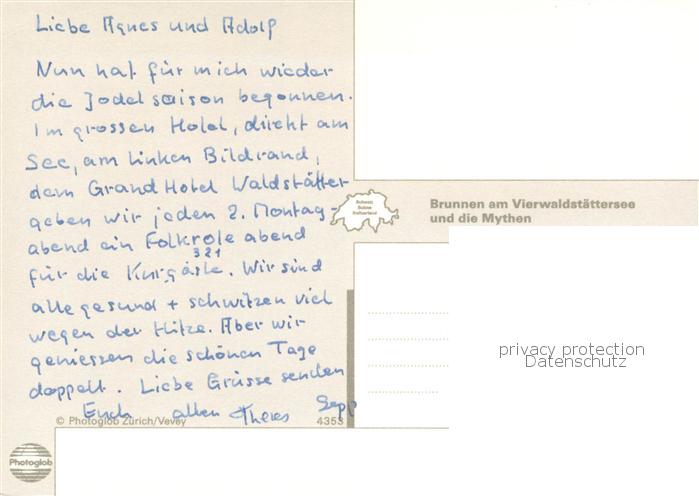 Liebe Agnes und Adolf
Nun hat für mich wieder
die Jodelsaison begonnen.
Im grossen Hotel, direkt am
See, am linken Bildrand,
dem Grand Hotel Waldstätter
geben wir jeden 2. Montag-
abend ein Folkroleabend
321
für die Kurgäste. Wir sind
alle gesund + schwitzen viel
wegen der Hitze. Aber wir
geniessen die schönen Tage
doppelt. Liebe Grüsse senden
Euch allen Theres Sepp
© Photoglob Zürich/Vevey 4353
Photoglob
Schweiz
Suisse
Switzerland
Brunnen am Vierwaldstättersee
und die Mythen
privacy protection
Datenschutz